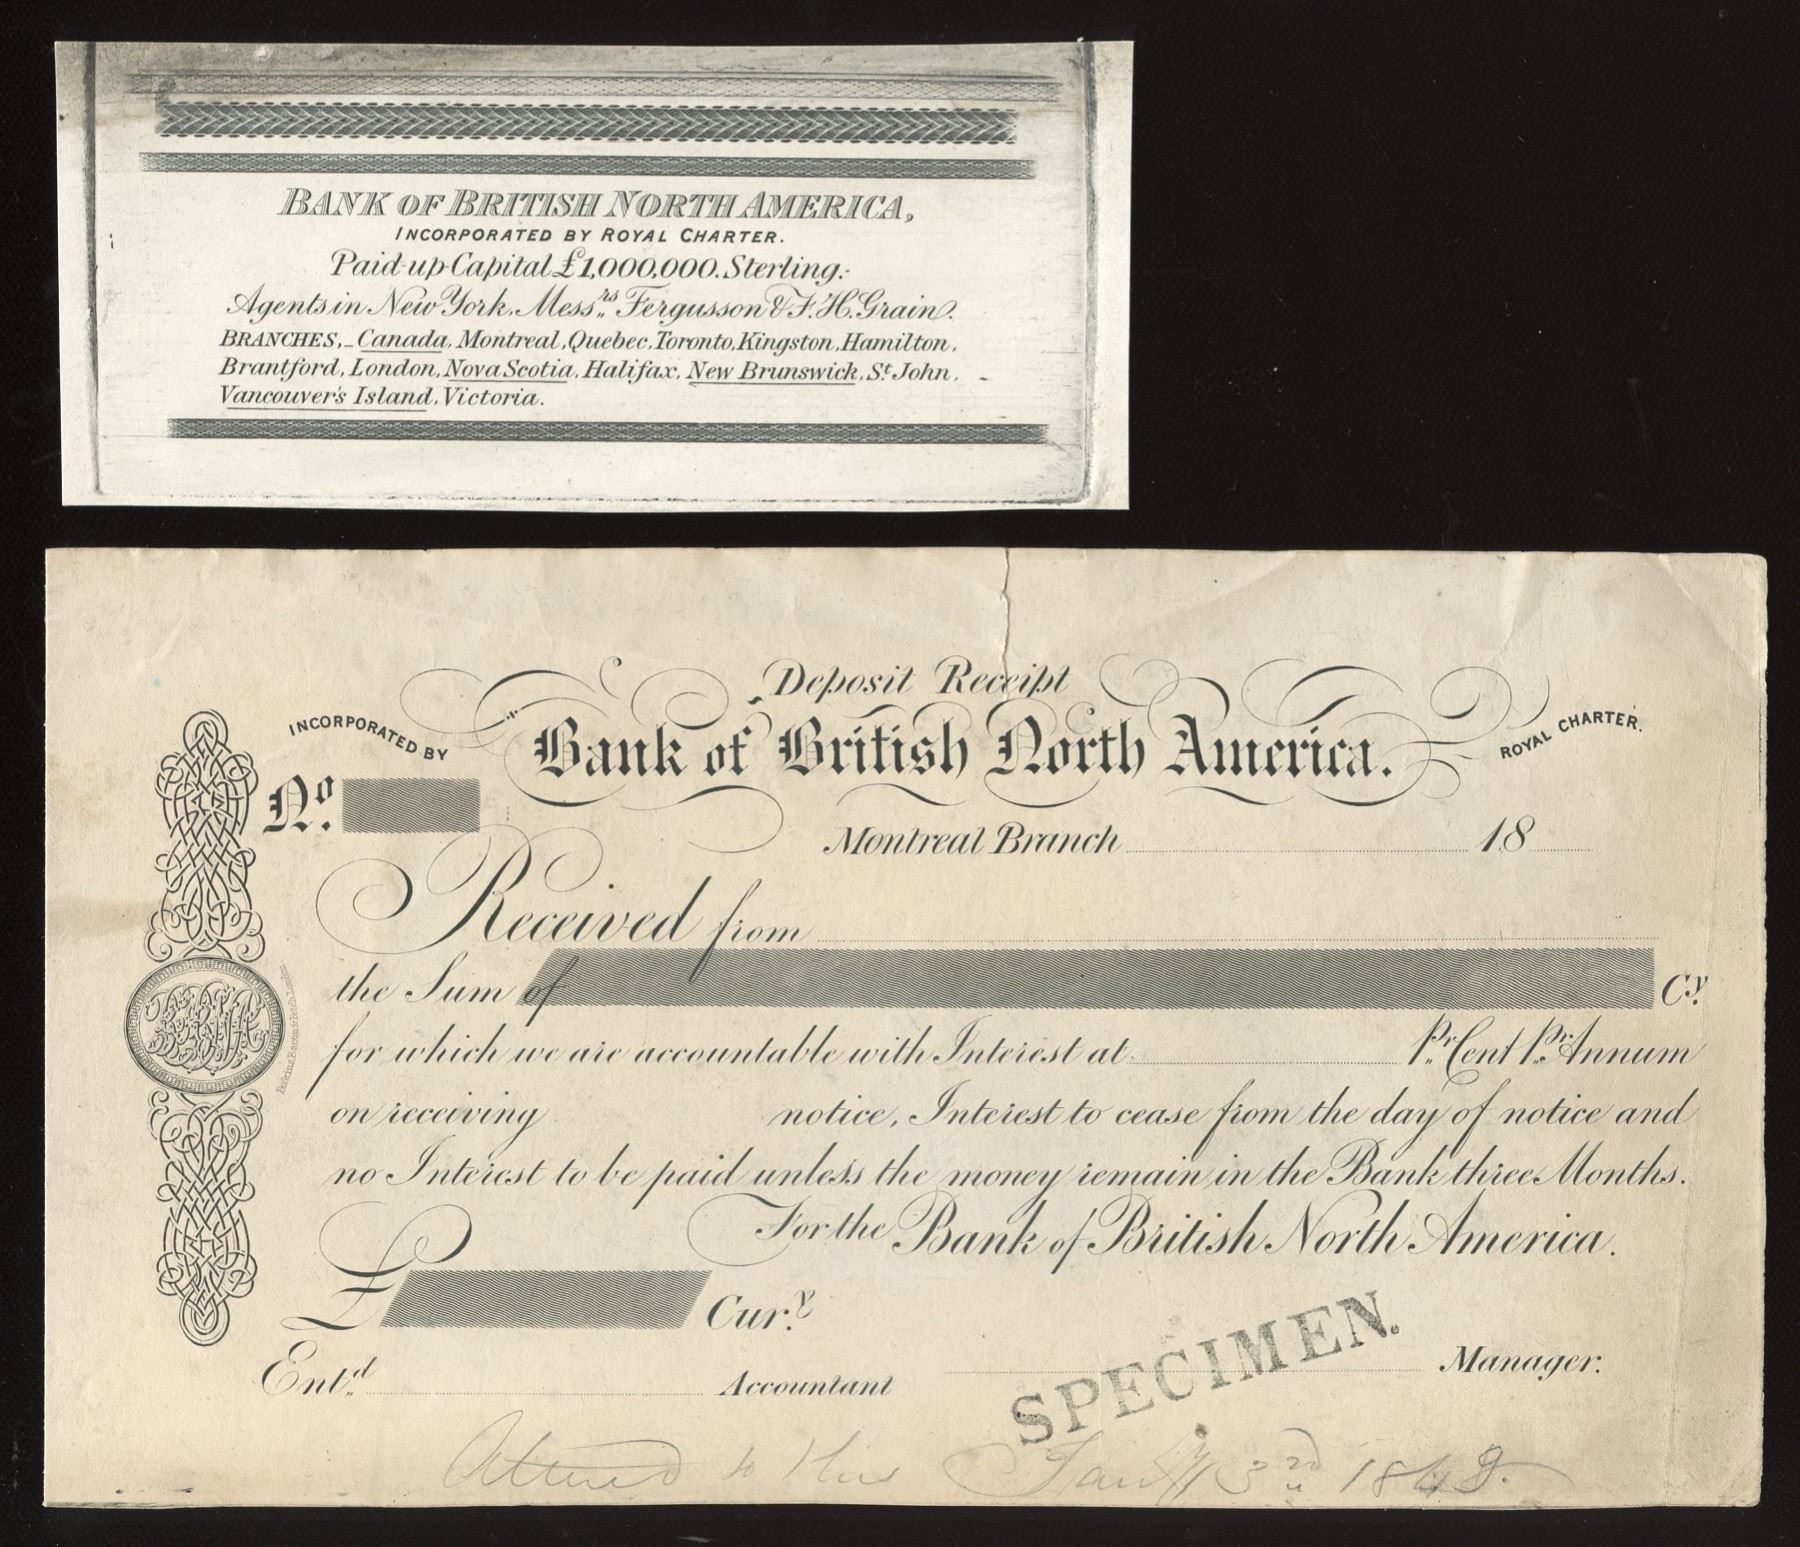 BANK OF BRITISH NORTH AMERICA,
INCORPORATED BY ROYAL CHARTER.
Paid-up Capital £1,000,000. Sterling.-
Agents in New York, Messrs. Fergusson & F. H. Grain.
BRANCHES,_Canada, Montreal, Quebec, Toronto, Kingston, Hamilton,
Brantford, London, Nova Scotia, Halifax, New Brunswick, St. John,
Vancouver's Island, Victoria.
Deposit Receipt
INCORPORATED BY
Bank of British North America.
ROYAL CHARTER.
No.
Montreal Branch 18
Received from
the Sum of Cy.
for which we are accountable with Interest at Pr. Cent Pr. Annum
on receiving notice, Interest to cease from the day of notice and
no Interest to be paid unless the money remain in the Bank three Months.
For the Bank of British North America.
£ Cury.
SPECIMEN.
Manager.
Entd. Accountant
Altered to this Jany 3rd